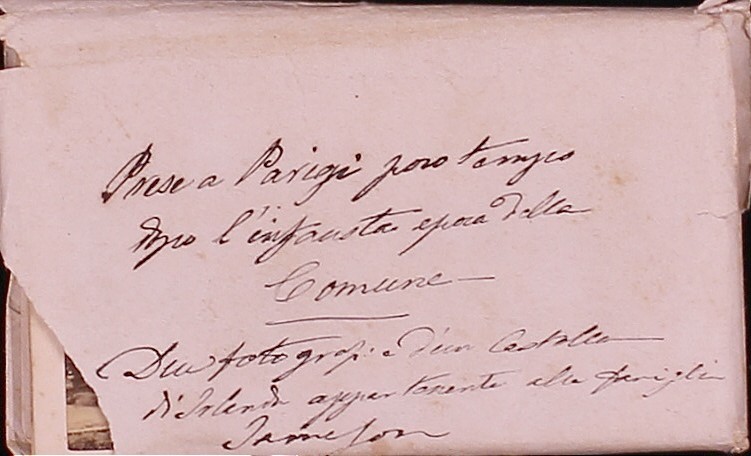 Prese a Parigi poco tempo
dopo l'infausta epoca della
Comune
Due fotografie d'un Castello
d'Irlanda appartenente alla famiglia
Jameson